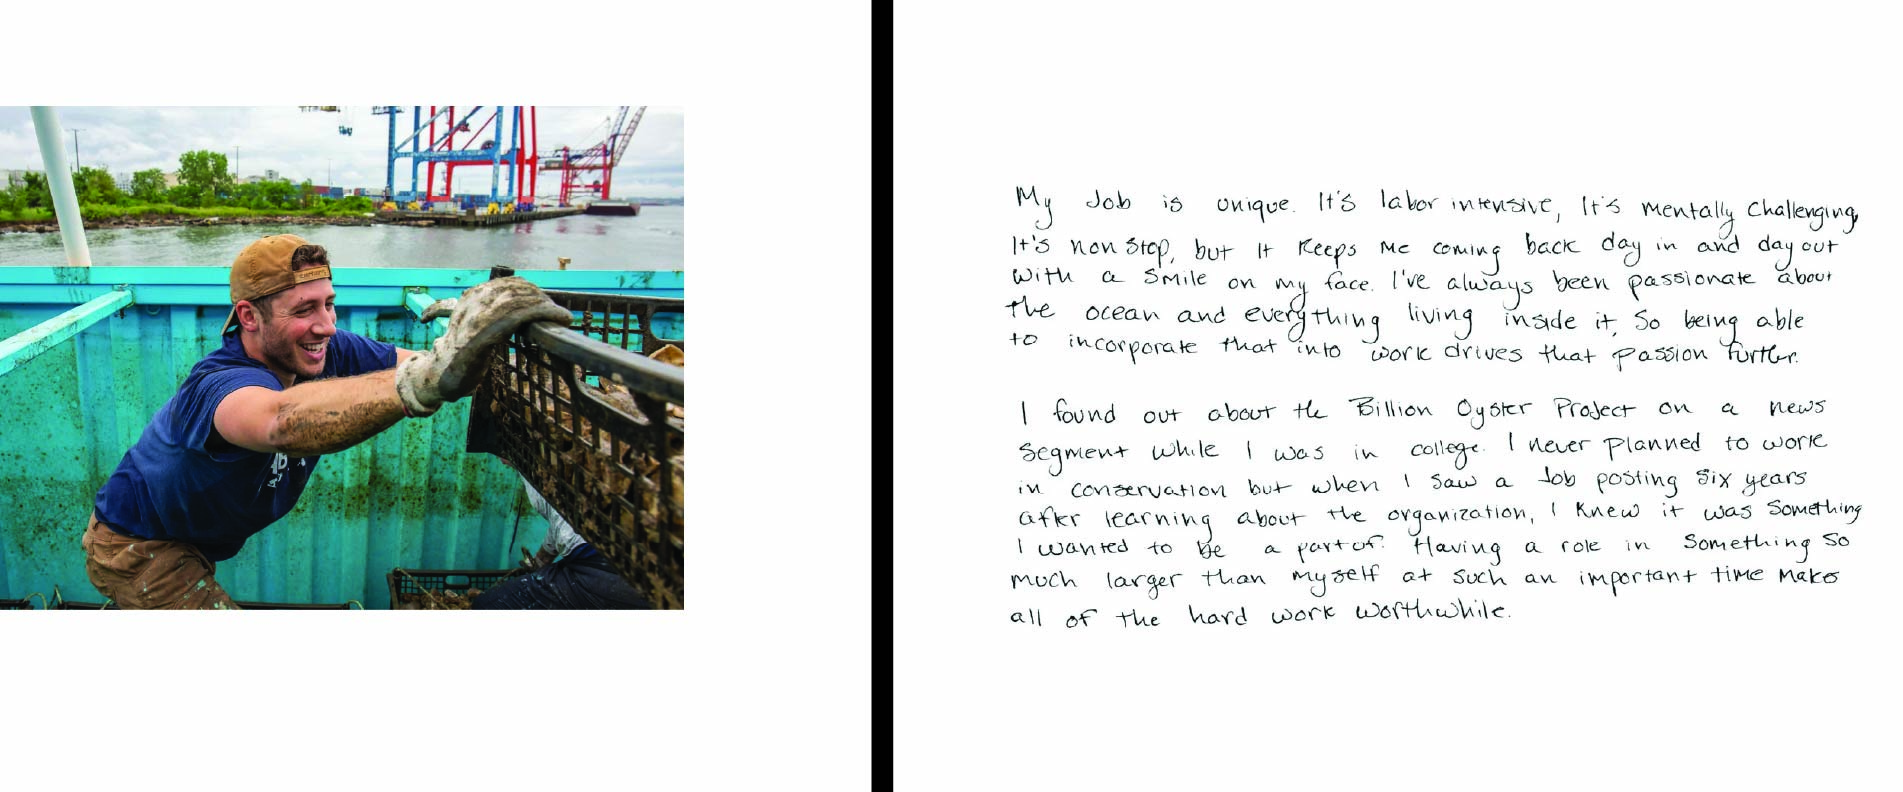 My Job is unique. It's labor intensive, It's mentally challenging,
It's non stop, but It keeps me coming back day in and day out
with a smile on my face. I've always been passionate about
the ocean and everything living inside it, So being able
to incorporate that into work drives that passion further.
I found out about the Billion Oyster Project on a news
segment while I was in college. I never planned to work
in conservation but when I saw a Job posting six years
after learning about the organization, I knew it was something
I wanted to be a part of. Having a role in something so
much larger than myself at such an important time makes
all of the hard work worthwhile.